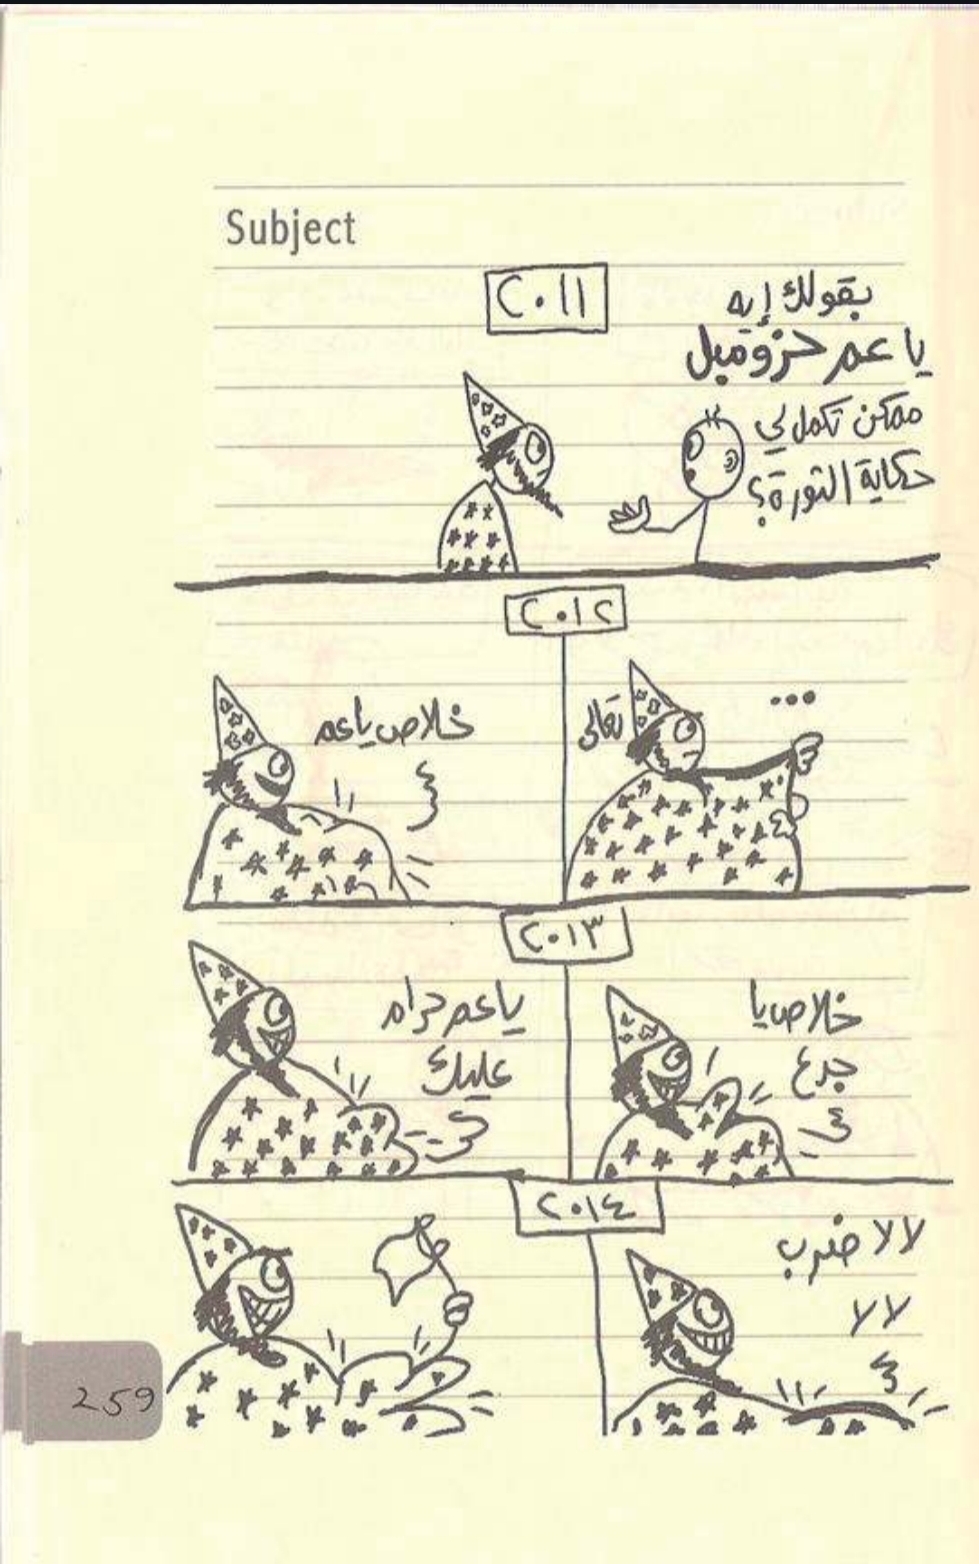 Subject
٢٠١١
بقولك إيه
يا عم حزومبل
ممكن تكمل لي
حكاية الثورة؟
٢٠١٢
...
تعالى
خلاص ياعم
٢٠١٣
خلاص يا
جدع
ياعم حرام
عليك
٢٠١٤
لالا ضرب
لالا
259